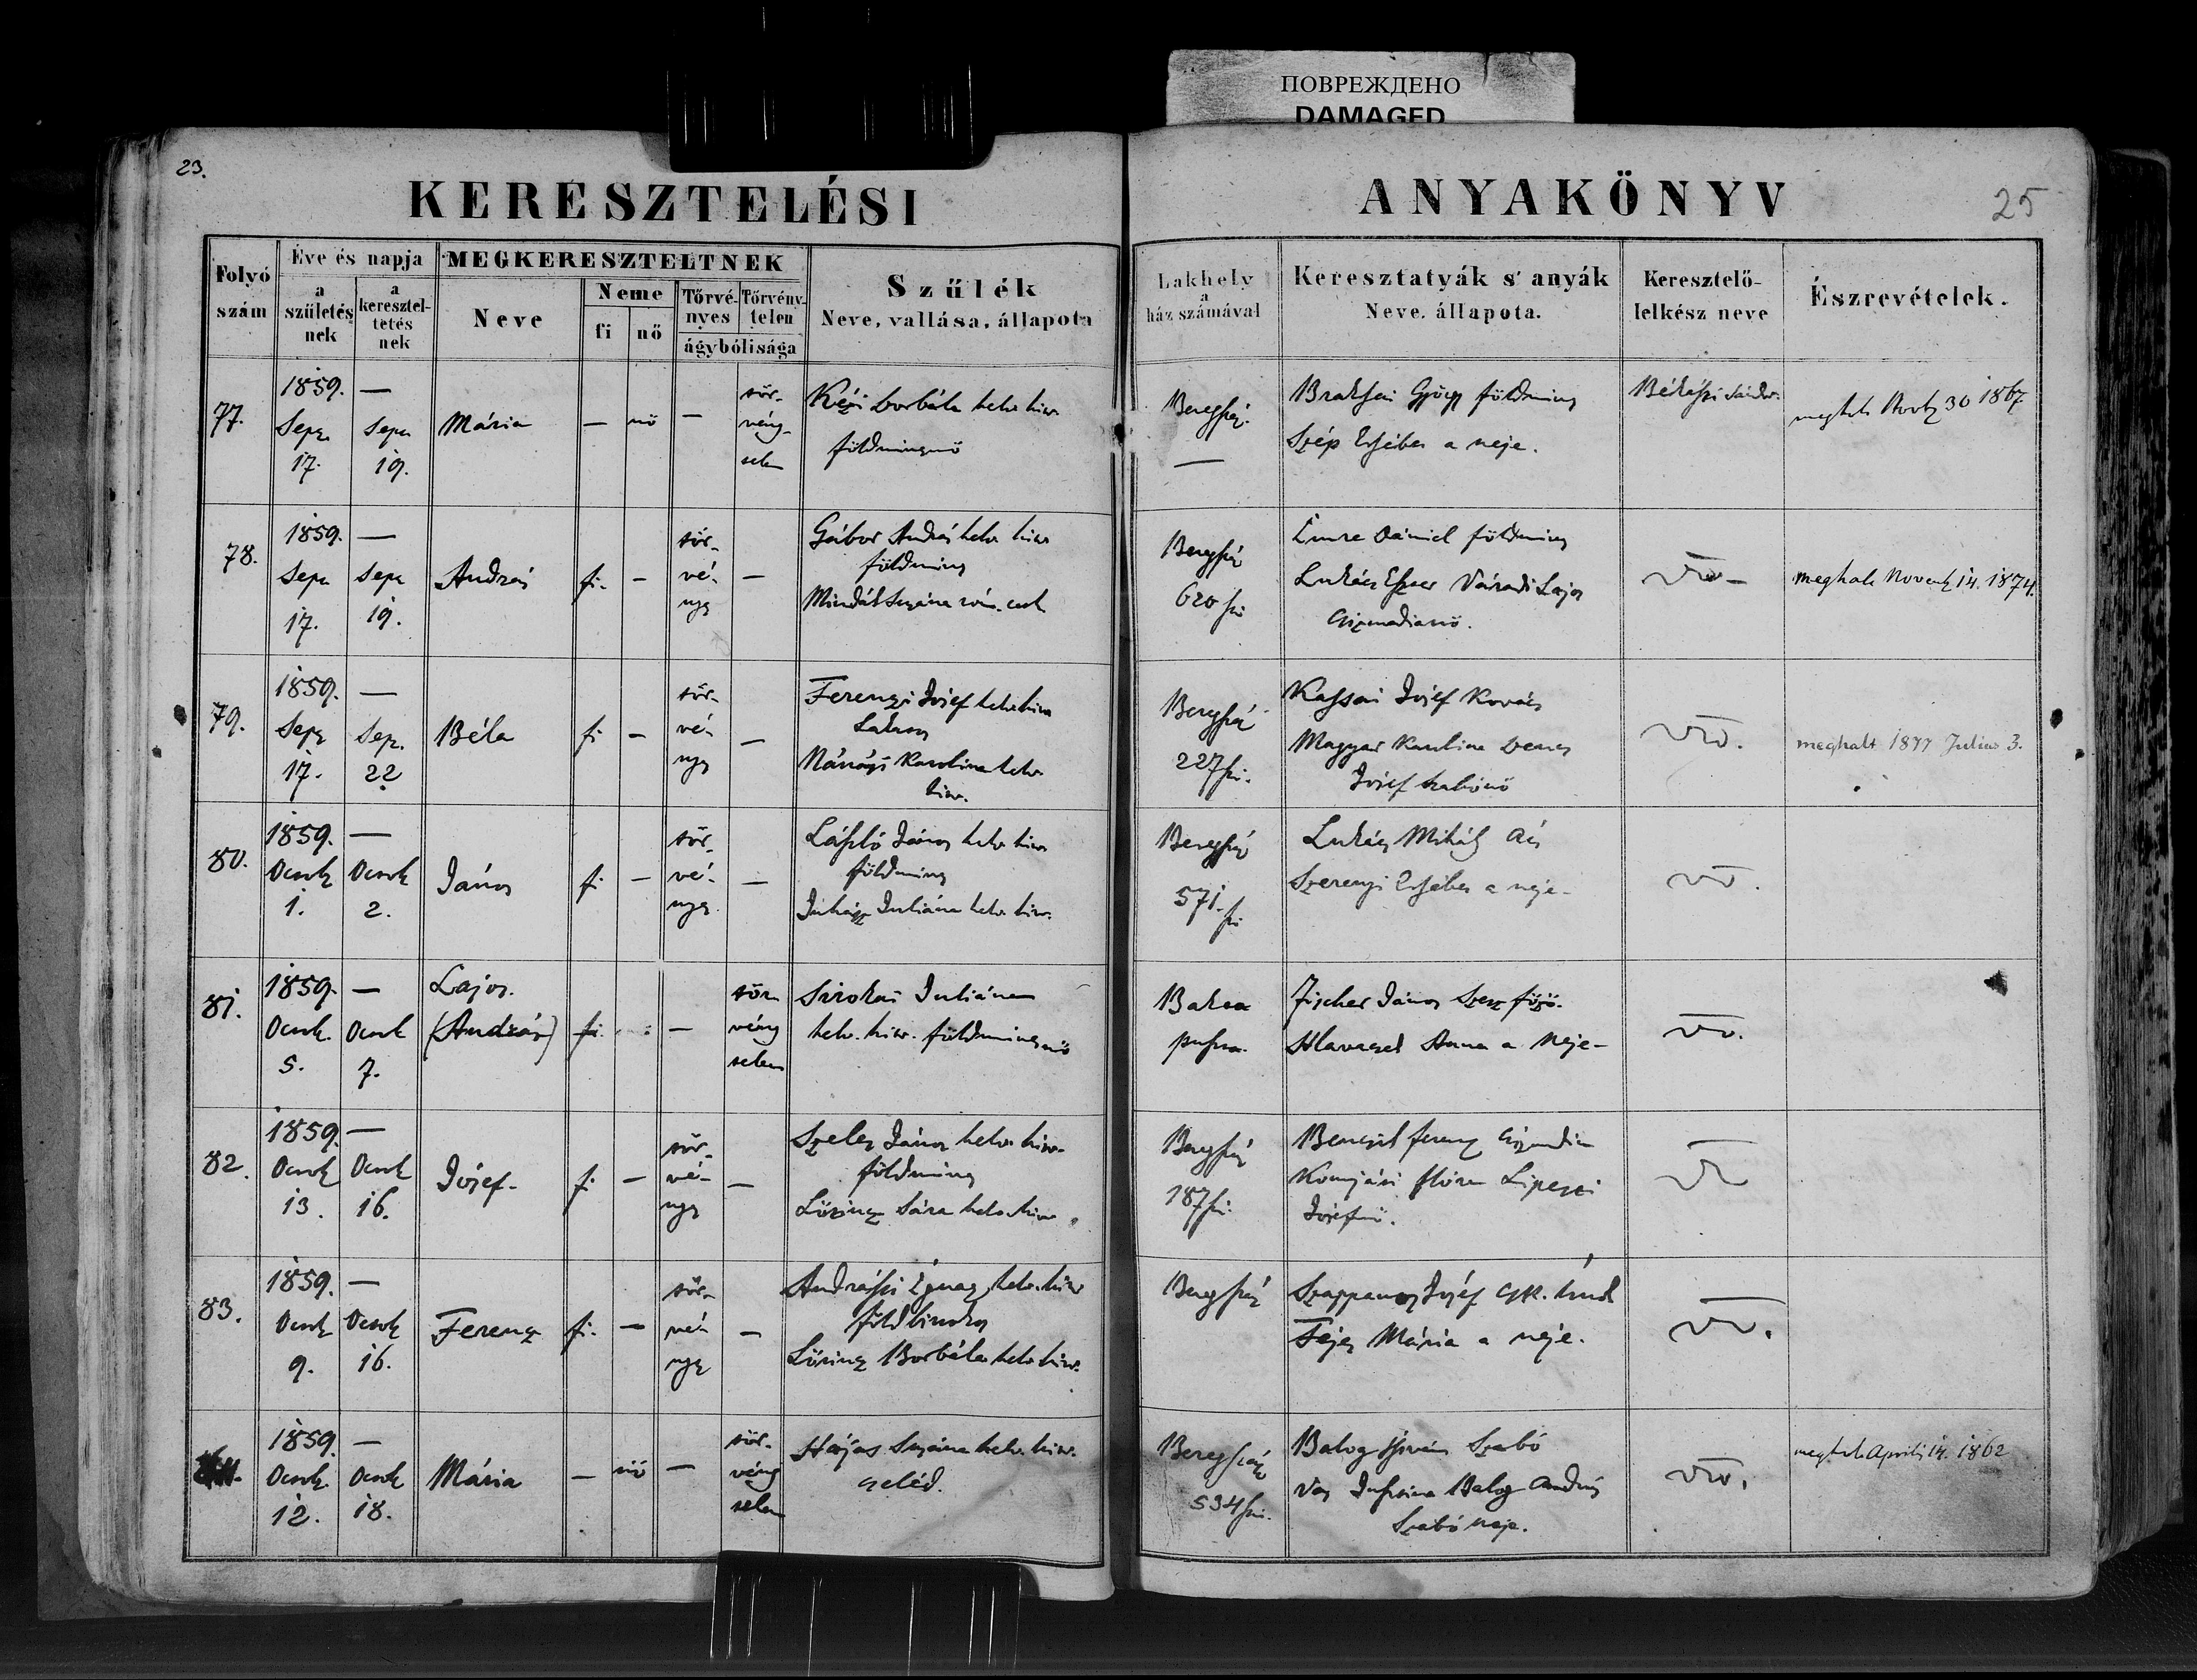 ПОВРЕЖДЕНО
DAMAGED
23.
KERESZTELÉSI
ANYAKÖNYV
25
Folyó szám
Éve és napja
a születésnek
a kereszteltetésnek
MEGKERESZTELTNEK
Neve
Neme
fi
nő
Törvényes
Törvénytelen
ágybólisága
Szűlék
Neve, vallása, állapota
Lakhely
a
ház számával
Keresztatyák s' anyák
Neve, állapota.
Keresztelő-
lelkész neve
Észrevételek.
77.
1859. —
Sept. 17.
Sept 19.
Mária
— nő —
törvénytelen
Borbála helv. hitv.
földmivesnő
Beregszáz.
—
György földmives
Szép Ersébet a neje.
Békássi Sándor
meghalt 30 1867
78.
1859. —
Sept 17.
Sept 19.
András
fi. —
törvényes
—
Gábor András helv. hitv
földmives
Mindák Susána róm. cath.
Beregszáz
620 sz
Imre Dániel földmives
Lukács Eszter Váradi Lajos
csizmadiané.
meghalt Novemb 14. 1874.
79.
1859. —
Sept 17.
Sep. 22
Béla
fi —
törvényes
—
Ferenczi Jósef helv. hitv
Lakatos
Nánási Karolina helv.
hitv.
Beregszáz
227 sz.
Kassai Jósef Kovács
Magyar Karolina
Jósef szabóné
meghalt 1877 Julius 3.
80.
1859. —
Octob 1.
Octob 2.
János
fi —
törvényes
—
László János helv. hitv
földmives
Juhász Juliána helv. hitv.
Beregszáz
571. sz
Lukács Mihály Ács
Szerenyi Ersébet a neje.
81.
1859. —
Octob. 5.
Octob 7.
Lajos.
(András)
fi.
—
törvénytelen
Sirokai Juliána
helv. hitv. földmivesnő
puszta.
Fischer János Szeszfőző.
Anna a neje.
82.
1859. —
Octob 13.
Octob 16.
Jósef.
fi —
törvényes
—
Szeles János helv. hitv.
földmives
Lőrincz Sára helv. hitv
Beregszáz
187 sz.
Ferencz
Komjáti Flóra
Jósefné.
83.
1859. —
Octob 9.
Octob 16.
Ferencz
fi. —
törvényes
—
Andrássi Ignacz helv. hitv
földbirtokos
Lőrincz Borbála helv. hitv.
Beregszáz
Szappanos Jósef
Fejes Mária a neje.
1859. —
Octob. 12.
Octob 18.
Mária
— nő —
törvénytelen
Hajas Susána helv. hitv.
cseléd.
Beregszász
534 sz.
Balog István Szabó
Vas Balog András
Szabó neje.
meghalt April 14. 1862